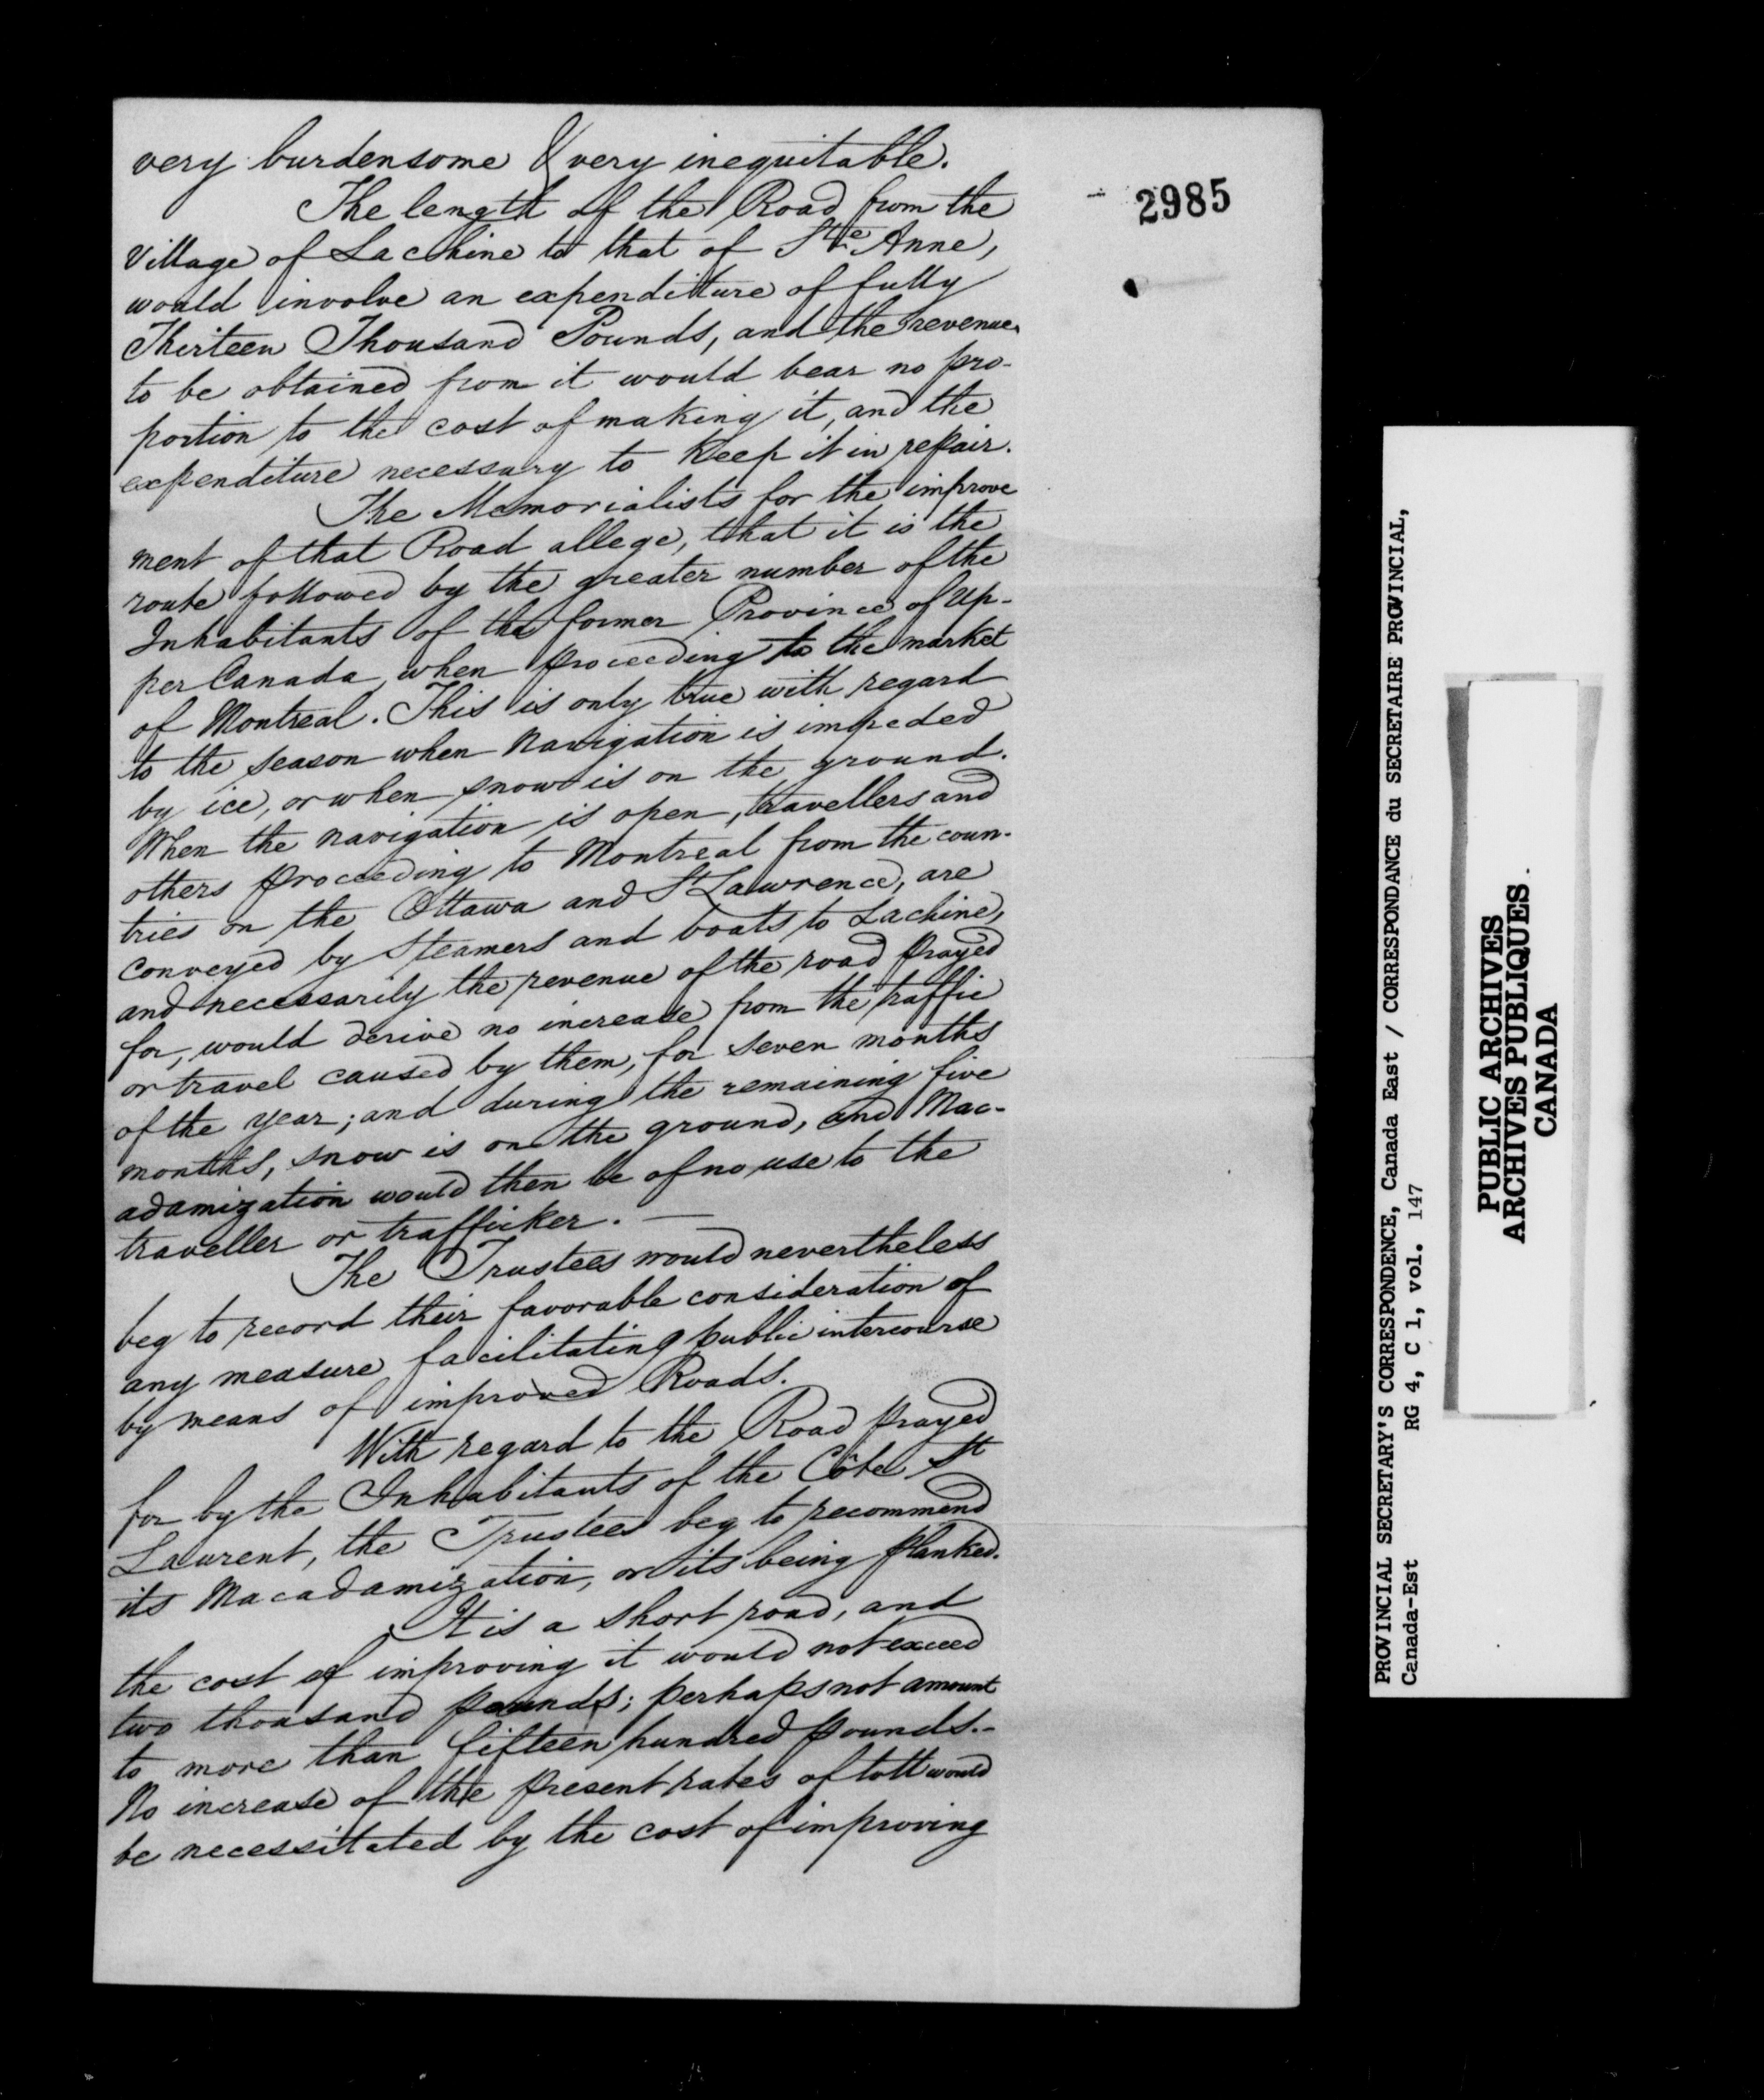 very burdensome & very inequitable.
The length of the Road from the
Village of Lachine to that of Ste Anne,
would involve an expenditure of fully
Thirteen Thousand Pounds, and the revenue
to be obtained from it would bear no pro-
portion to the cost of making it, and the
expenditure necessary to keep it in repair.
The Memorialists for the improve
ment of that Road allege, that it is the
route followed by the greater number of the
Inhabitants of the former Province of Up-
per Canada, when proceeding to the market
of Montreal. This is only true with regard
to the season when Navigation is impeded
by ice, or when snow is on the ground.
When the navigation is open, travellers and
others proceeding to Montreal from the coun-
tries on the Ottawa and St Lawrence, are
conveyed by Steamers and boats to Lachine,
and necessarily the revenue of the road prayed
for, would derive no increase from the traffic
or travel caused by them, for seven months
of the year; and during the remaining five
months, snow is on the ground, and Mac-
adamization would then be of no use to the
traveller or trafficker. —
The Trustees would nevertheless
beg to record their favorable consideration of
any measure facilitating public intercourse
by means of improved Roads.
With regard to the Road prayed
for by the Inhabitants of the Côte St
Laurent, the Trustees beg to recommend
its Macadamization, or its being planked.
It is a short road, and
the cost of improving it would not exceed
two thousand pounds; perhaps not amount
to more than fifteen hundred pounds.-
No increase of the present rates of toll would
be necessitated by the cost of improving
2985
PROVINCIAL SECRETARY'S CORRESPONDENCE, Canada East / CORRESPONDANCE du SECRETAIRE PROVINCIAL,
Canada-Est RG 4, C 1, vol. 147
PUBLIC ARCHIVES
ARCHIVES PUBLIQUES
CANADA